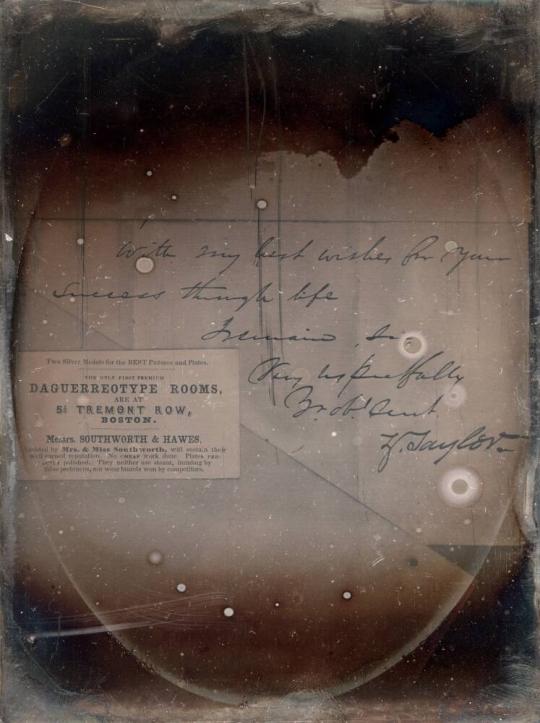 With my best wishes for your
success through life
I remain, Sir
Very respectfully
Yr. Ob! Servt
Z. Taylor
Two Silver Medals for the BEST Pictures and Plates.
THE ONLY FIRST PREMIUM
DAGUERREOTYPE ROOMS,
ARE AT
5½ TREMONT ROW,
BOSTON.
Messrs. SOUTHWORTH & HAWES,
Assisted by Mrs. & Miss Southworth, will sustain their
well earned reputation. No CHEAP work done. Plates
polished. They neither use steam, bunting by
false pretences, nor wear laurels won by competitors.